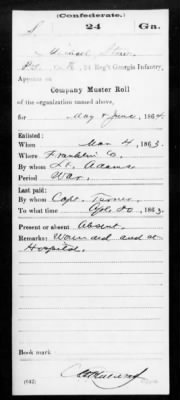 (Confederate.)
S 24 Ga.
Michael
Pvt., Co. , 24 Reg't Georgia Infantry.
Appears on
Company Muster Roll
of the organization named above,
for May & June, 1864.
Enlisted:
When Mar 4, 1863.
Where Franklin Co.
By whom Lt. Adams
Period War.
Last paid:
By whom Capt. Turner
To what time 30, 1863.
Present or absent Absent.
Remarks: Wounded and at
Hospital.
Book mark
(642)